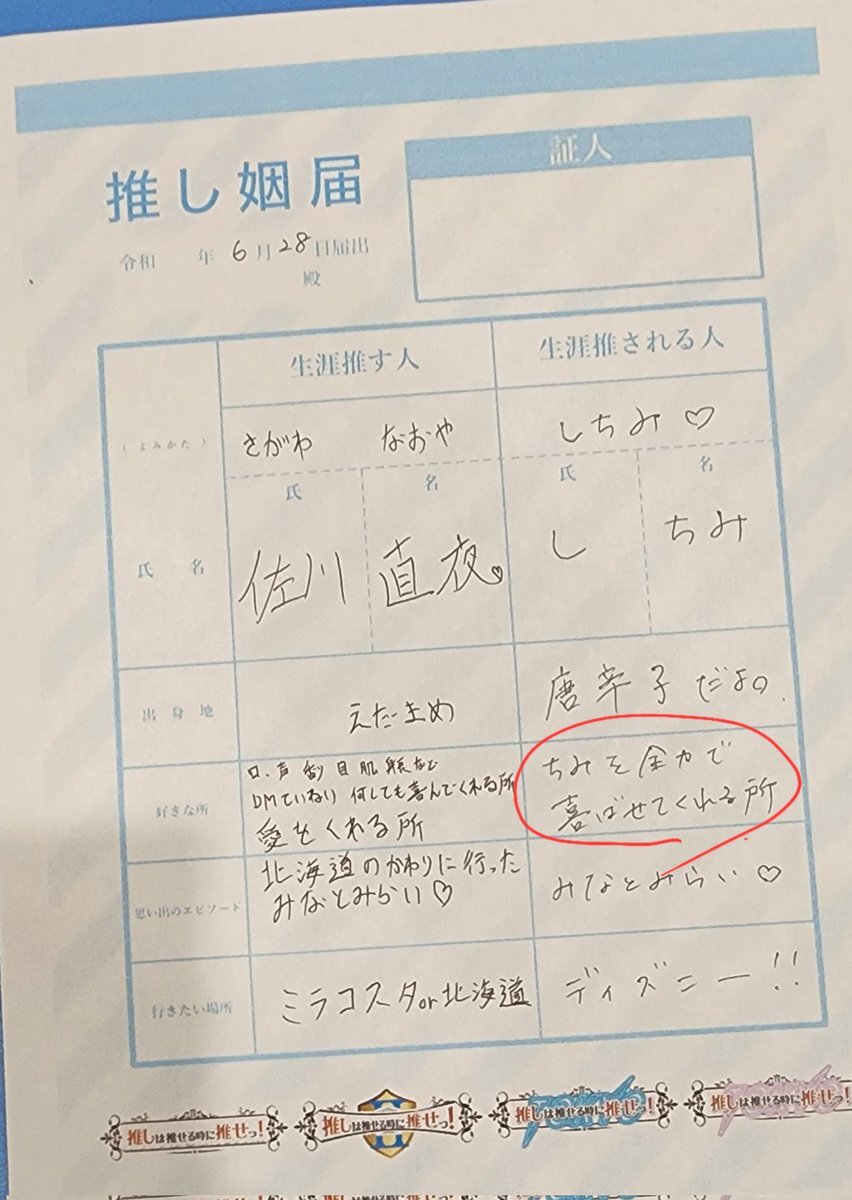 推し姻届
令和 年 6月 28日届出
殿
証人
生涯推す人 生涯推される人
(よみかた) さがわ なおや しちみ♡
氏 名 氏 名
氏 名 佐川 直夜 し ちみ
出身地 えだまめ 唐辛子だよ
好きな所
口、声 香り 目 肌 など
DMていねい 何しても喜んでくれる所
愛をくれる所
ちみを全力で
喜ばせてくれる所
思い出のエピソード
北海道のかわりに行った
みなとみらい♡
みなとみらい♡
行きたい場所 ミラコスタor北海道 ディズニー!!
推しは推せる時に推せっ!
推しは推せる時に推せっ!
推しは推せる時に推せっ!
推しは推せる時に推せっ!